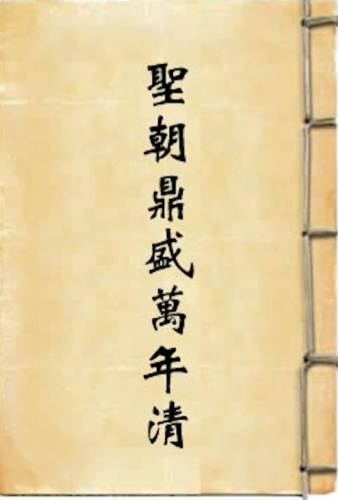 聖朝鼎盛萬年清